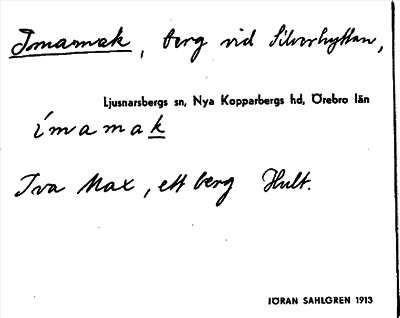 Imamak, berg vid Silverhyttan,
Ljusnarsbergs sn, Nya Kopparbergs hd, Örebro län
ímamak
Iva Max, ett berg Hult.
JÖRAN SAHLGREN 1913